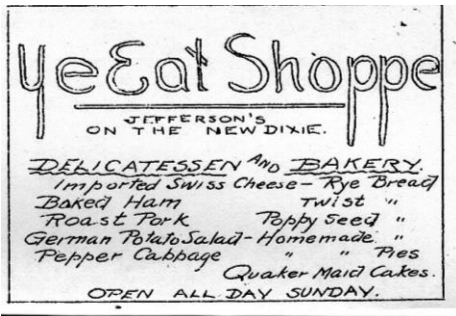 Ye Eat Shoppe
JEFFERSON'S
ON THE NEW DIXIE.
DELICATESSEN AND BAKERY.
Imported Swiss Cheese – Rye Bread
Baked Ham Twist "
Roast Pork Poppy Seed "
German Potato Salad - Homemade "
Pepper Cabbage " " Pies
Quaker Maid Cakes.
OPEN ALL DAY SUNDAY.